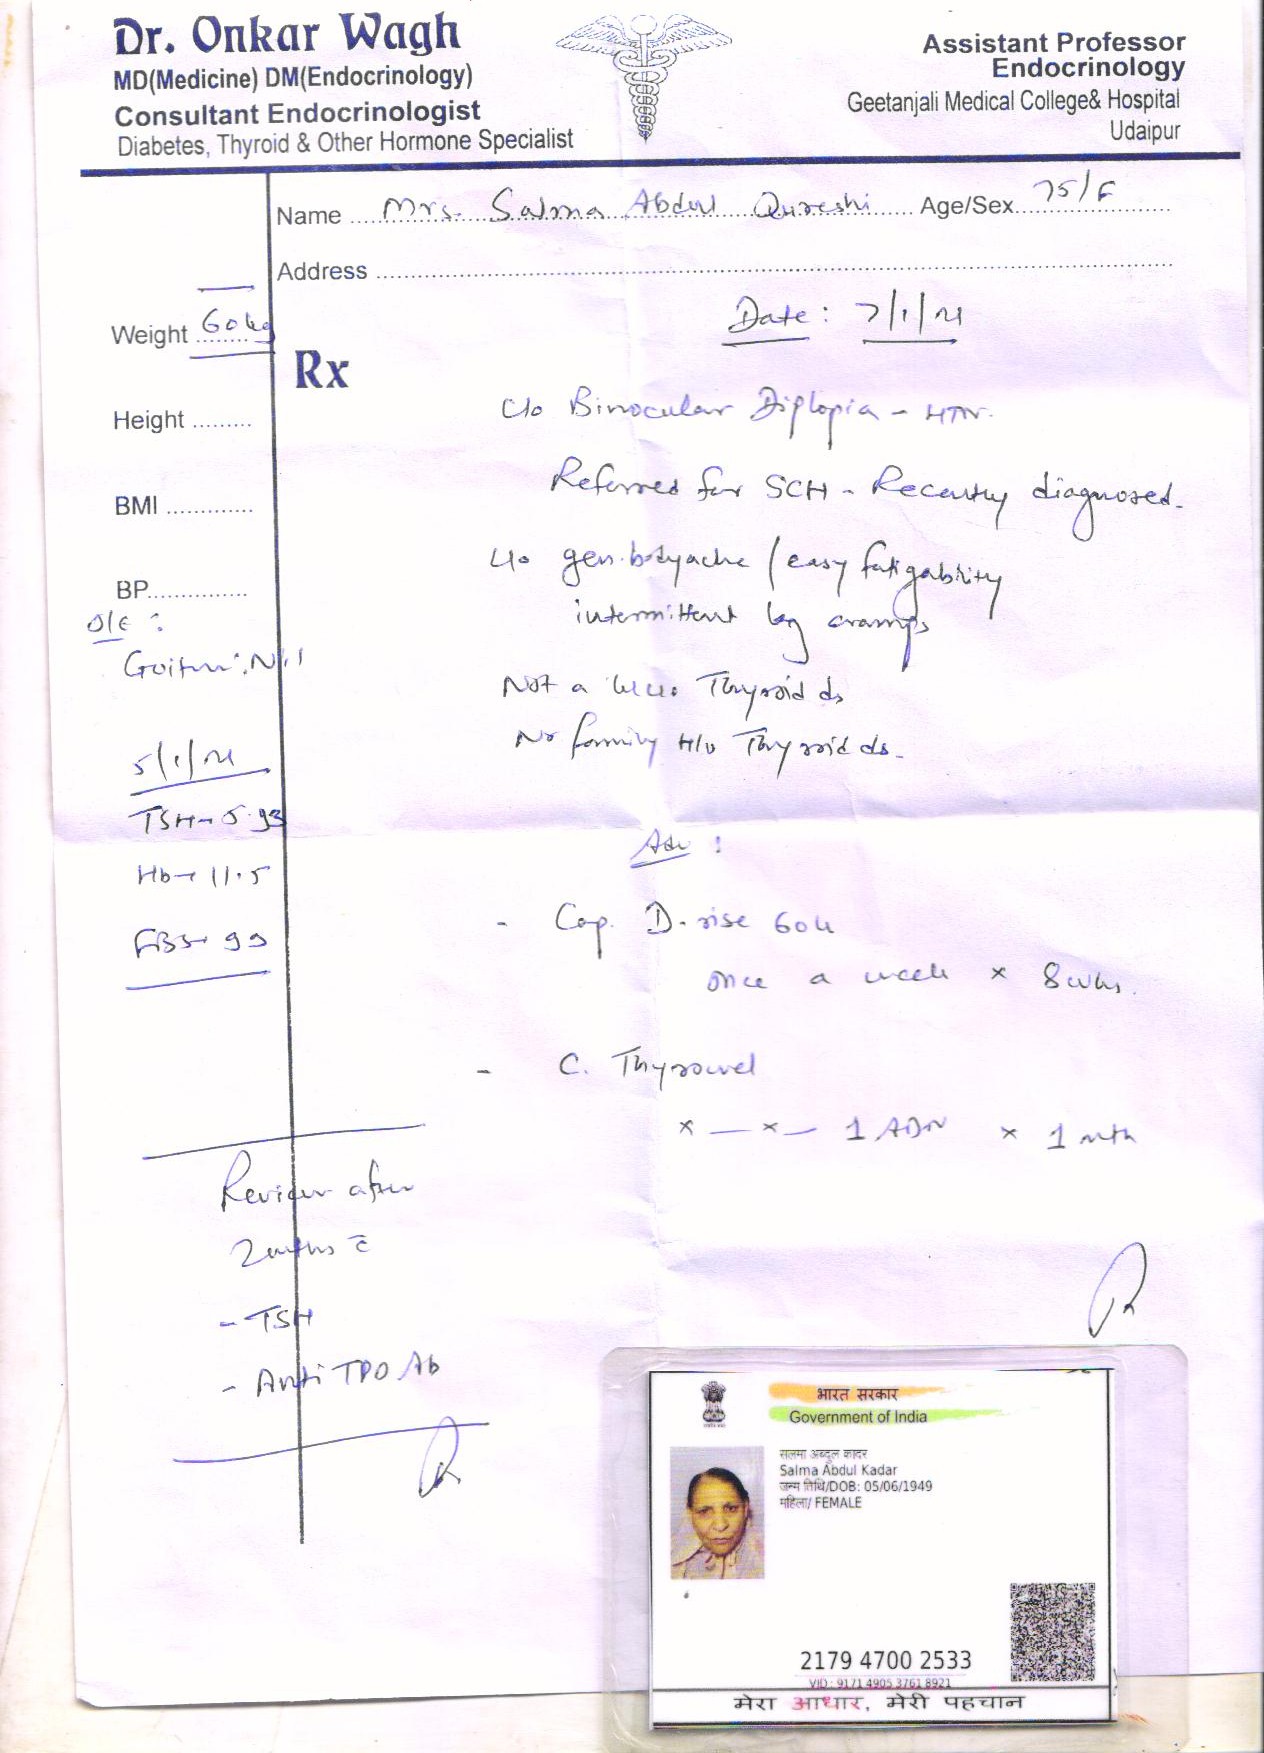 Dr. Onkar Wagh
MD(Medicine) DM(Endocrinology)
Consultant Endocrinologist
Diabetes, Thyroid & Other Hormone Specialist
Assistant Professor
Endocrinology
Geetanjali Medical College& Hospital
Udaipur
Name Mrs. Salma Abdul Qureshi Age/Sex 75/F
Address
Date: 7/1/21
Weight 60kg
Rx
Height
BMI
BP
O/E :
Goitre: Nil
5/1/21
TSH - 5.93
Hb → 11.5
FBS → 99
C/o Binocular Diplopia - HTN.
Referred for SCH - Recently diagnosed.
C/o gen. bodyache / easy fatigability
intermittent leg cramps
Not a Thyroid ds
No family H/o Thyroid ds.
Adv :
- Cap. D-rise 60k
once a week x 8wks.
- C. Thyrowel
x — x — 1 x 1 mth
Review after
2 mths c̄
- TSH
- Anti TPO Ab
भारत सरकार
Government of India
सलमा अब्दुल कादर
Salma Abdul Kadar
जन्म तिथि/DOB: 05/06/1949
महिला/ FEMALE
2179 4700 2533
VID : 9171 4905 3761 8921
मेरा आधार, मेरी पहचान